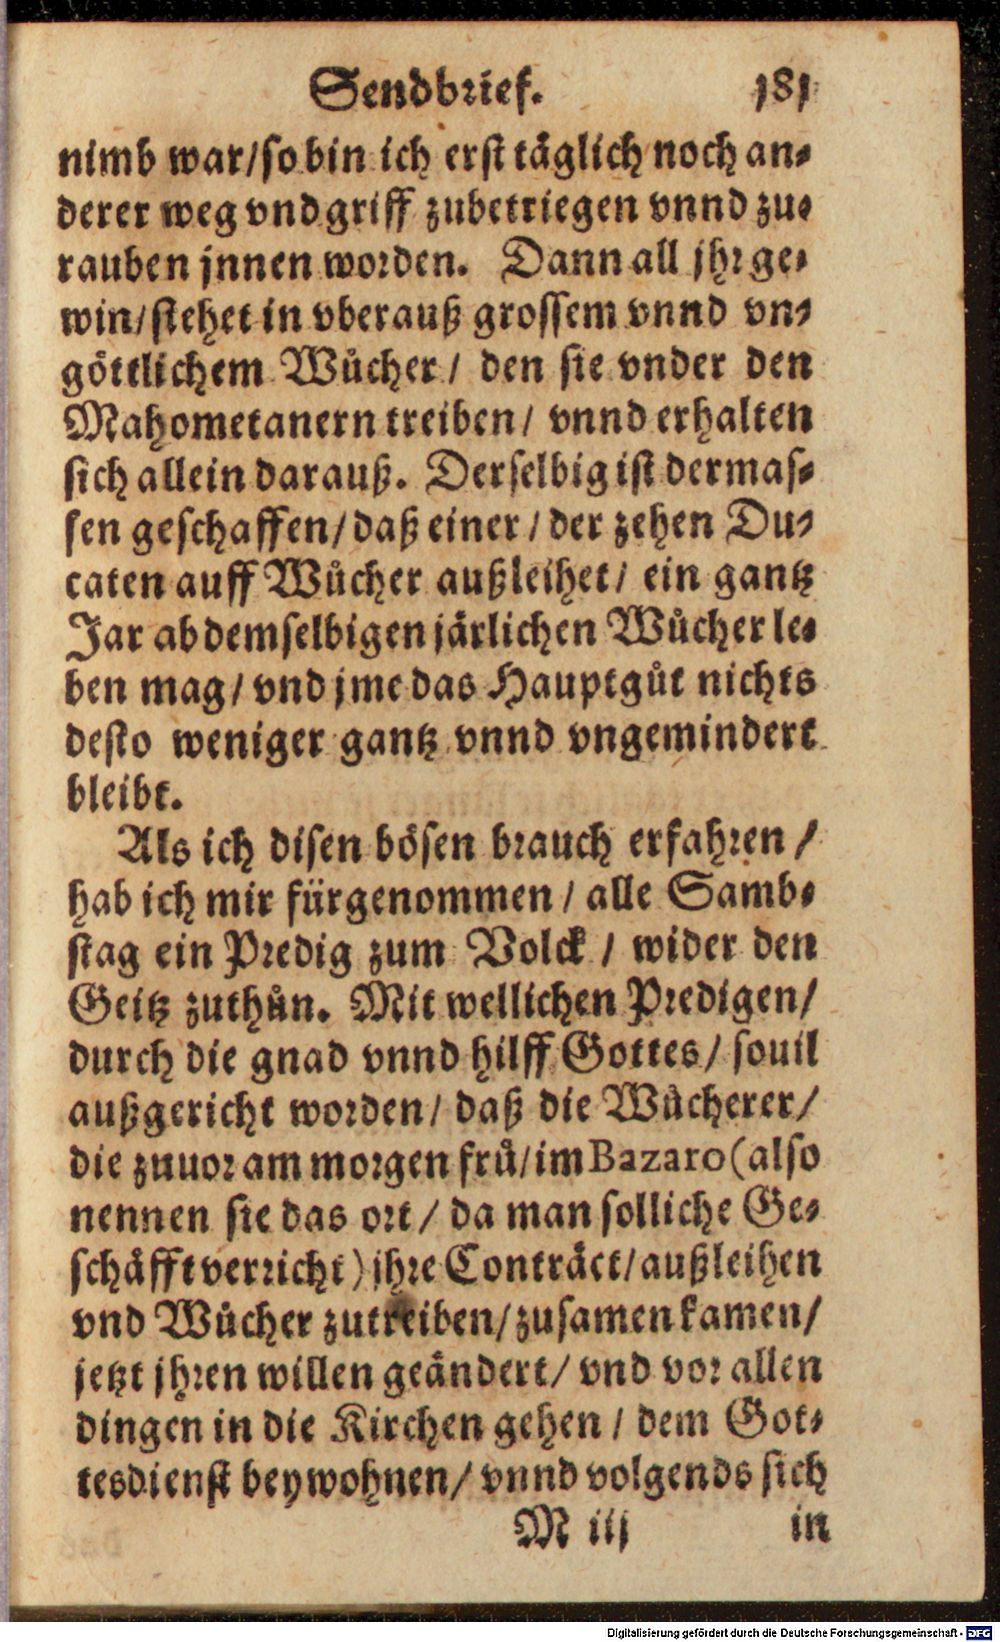 Sendbrief. 181
nimb war/ so bin ich erst täglich noch an⸗
derer weg vnd griff zubetriegen vnnd zu⸗
rauben jnnen worden. Dann all jhr ge⸗
win/ stehet in vberauß grossem vnnd vn⸗
göttlichem Wůcher/ den sie vnder den
Mahometanern treiben/ vnnd erhalten
sich allein darauß. Derselbig ist dermas⸗
sen geschaffen/ daß einer/ der zehen Du⸗
caten auff Wůcher außleihet/ ein gantz
Jar ab demselbigen järlichen Wůcher le⸗
ben mag/ vnd jme das Hauptgůt nichts
desto weniger gantz vnnd vngemindert
bleibt.
Als ich disen bösen brauch erfahren/
hab ich mir fürgenommen/ alle Samb⸗
stag ein Predig zum Volck/ wider den
Geitz zuthůn. Mit wellichen Predigen/
durch die gnad vnnd hilff Gottes/ souil
außgericht worden/ daß die Wůcherer/
die zuuor am morgen frů/ im Bazaro (also
nennen sie das ort/ da man solliche Ge⸗
schäfft verricht) jhre Conträct/ außleihen
vnd Wůcher zutreiben/ zusamen kamen/
jetzt jhren willen geändert/ vnd vor allen
dingen in die Kirchen gehen/ dem Got⸗
tesdienst beywohnen/ vnnd volgends sich
M iij in
Digitalisierung gefördert durch die Deutsche Forschungsgemeinschaft - DFG